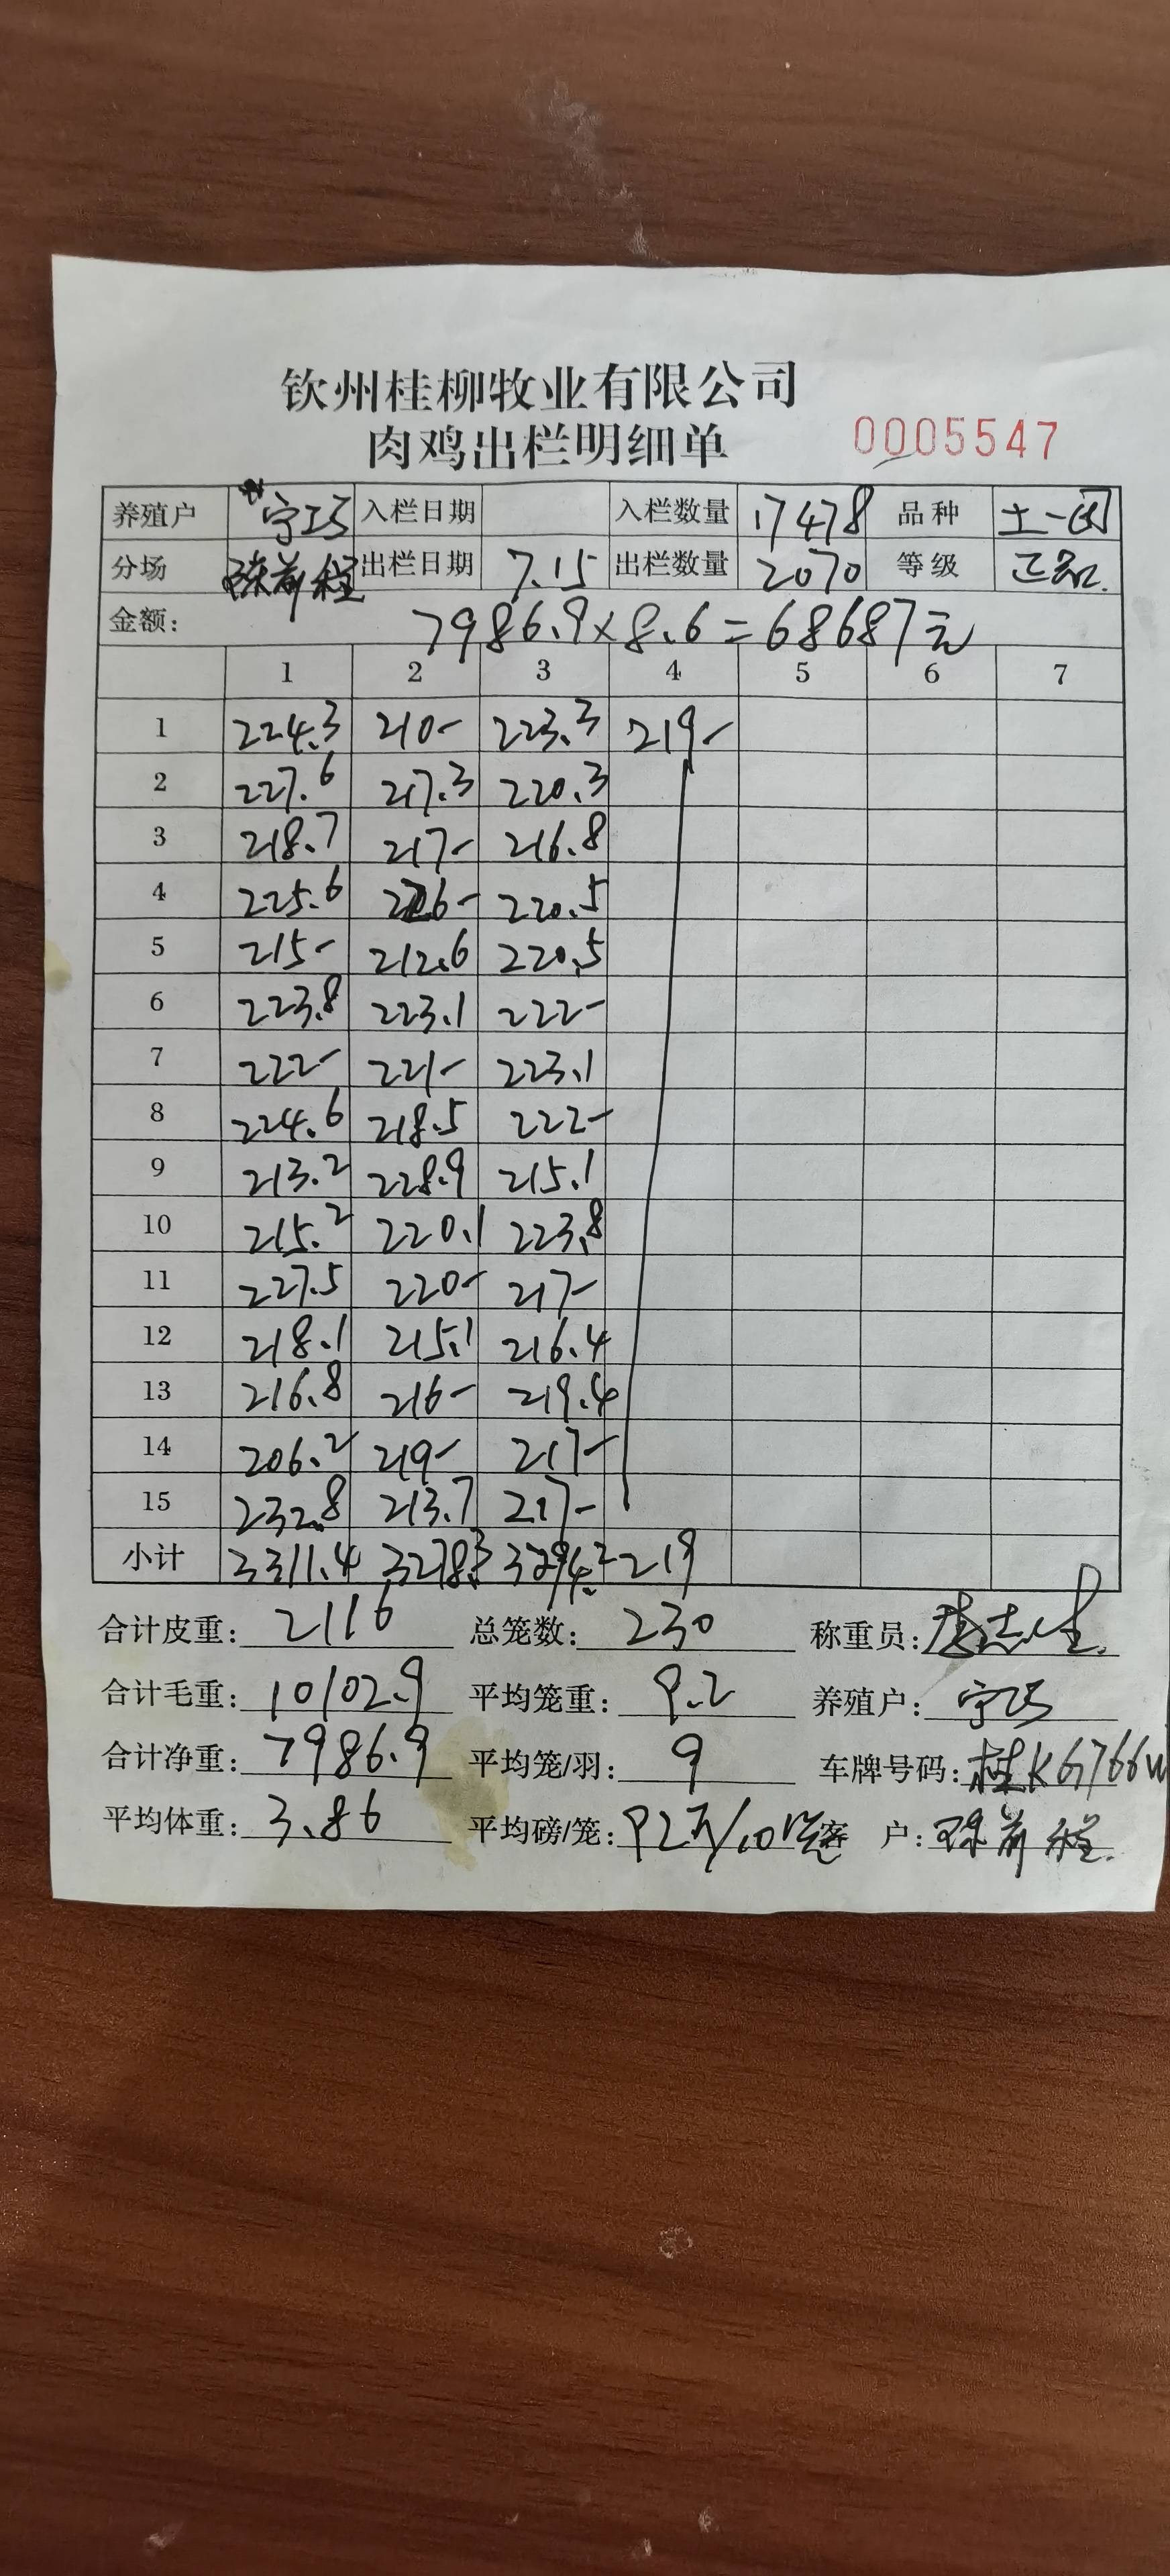 钦州桂柳牧业有限公司
肉鸡出栏明细单 0005547
养殖户 宁巧 入栏日期 入栏数量 17478 品种 土一
分场 陈前程 出栏日期 7.15 出栏数量 2070 等级 正品
金额: 7986.9×8.6=68687元
1 2 3 4 5 6 7
1 224.3 210- 223.3 219-
2 227.6 217.3 220.3
3 218.7 217- 216.8
4 225.6 226- 220.5
5 215- 212.6 220.5
6 223.8 223.1 222-
7 222- 221- 223.1
8 224.6 218.5 222-
9 213.2 228.9 215.1
10 215.2 220.1 223.8
11 227.5 220- 217-
12 218.1 215.1 216.4
13 216.8 216- 219.4
14 206.2 219- 217-
15 232.8 213.7 217-
小计 3311.4 3278.3 3294.2 219
合计皮重: 2116 总笼数: 230 称重员:
合计毛重: 10102.9 平均笼重: 9.2 养殖户: 宁巧
合计净重: 7986.9 平均笼/羽: 9 车牌号码: 桂KG766W
平均体重: 3.86 平均磅/笼: 92斤/10笼 客 户: 陈前程